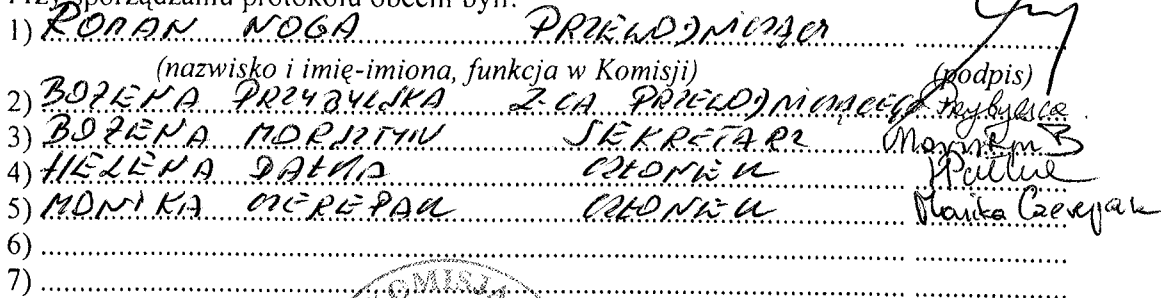 Przy sporządzaniu protokołu obecni byli:
1) ROMAN NOGA PRZEWODNICZĄCY
(nazwisko i imię-imiona, funkcja w Komisji) (podpis)
2) BOŻENA PRZYBYLSKA Z-CA PRZEWODNICZĄCEGO Przybylska
3) BOŻENA MORSZTYN SEKRETARZ
4) HELENA CZŁONEK
5) MONIKA CZEREPAK CZŁONEK Monika Czerepak
6)
7)
KOMISJA